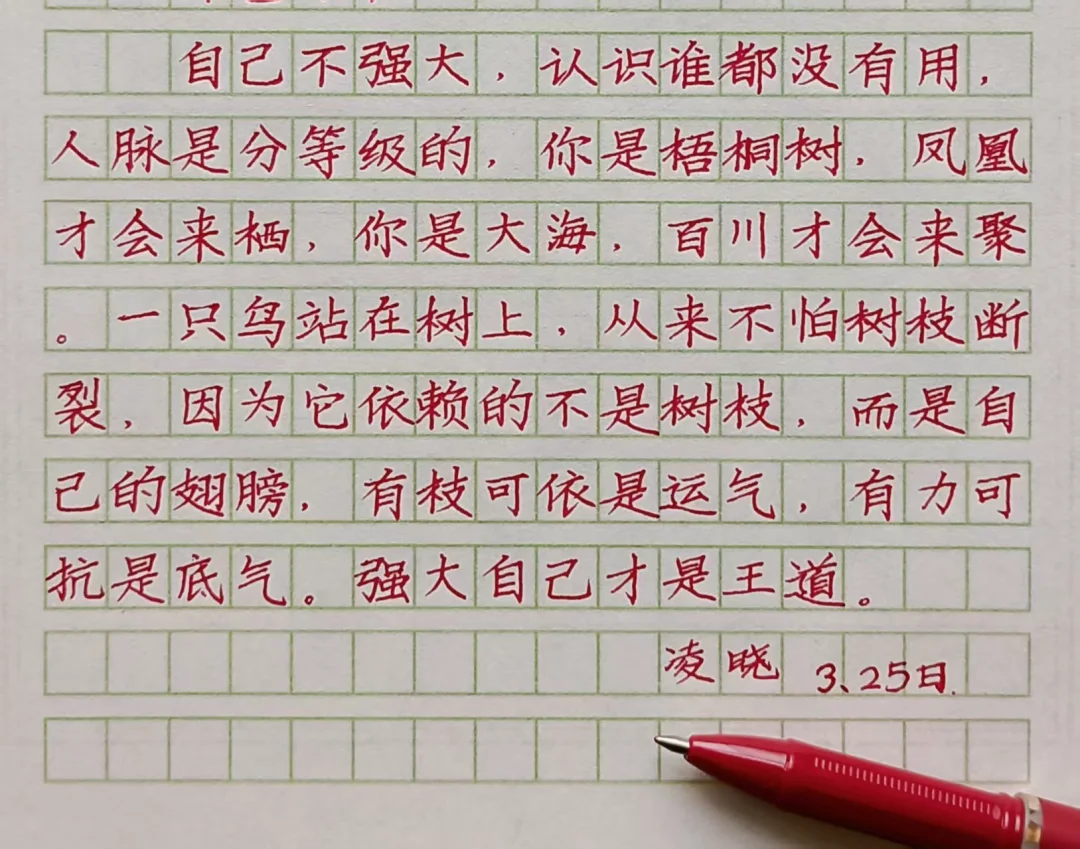 自己不强大，认识谁都没有用，
人脉是分等级的，你是梧桐树，凤凰
才会来栖，你是大海，百川才会来聚
。一只鸟站在树上，从来不怕树枝断
裂，因为它依赖的不是树枝，而是自
己的翅膀，有枝可依是运气，有力可
抗是底气。强大自己才是王道。
凌晓 3、25日.